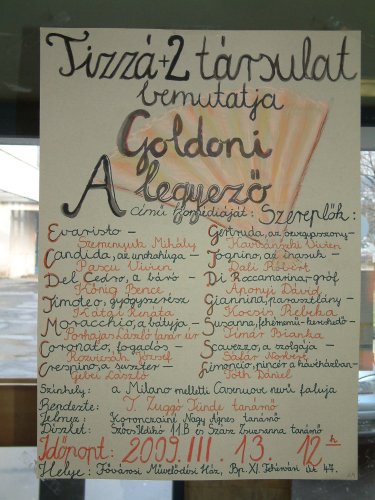 Tizzá+2 társulat
bemutatja
Goldoni
A legyező
című komédiáját: Szereplők:
Evaristo –
Szemenyuk Mihály
Candida, az unokahúga –
Pascu Vivien
Del Cedro, a báró –
König Bence
Timoteo, gyógyszerész
Kátai Renáta
Moracchio, a bátyja –
László tanár úr
Coronato, fogadós –
József
Crespino, a suszter –
László
Gertruda, az özvegyasszony –
Vivien
Tognino, az inasuk –
Dali Róbert
Di Roccamarina gróf
Aponyi Dávid
Giannina, parasztlány –
Kocsis Rebeka
Susanna, fehérnemű-kereskedő –
Bianka
Scavezzo, a szolgája –
Sáfár Norbert
Limoncio, pincér a kávéházban –
Tóth Dániel
Színhely: a Milano melletti Casenuove nevű falu
Rendezte: T. Zuggó Tünde tanárnő
Jelmez: Koronczainé Nagy Ágnes tanárnő
Díszlet: Szőcs Ildikó 11.B és Szász Zsuzsanna tanárnő
Időpont: 2009. III. 13. 12h
Helye: Fővárosi Művelődési Ház, Bp. XI. Fehérvári út 47.